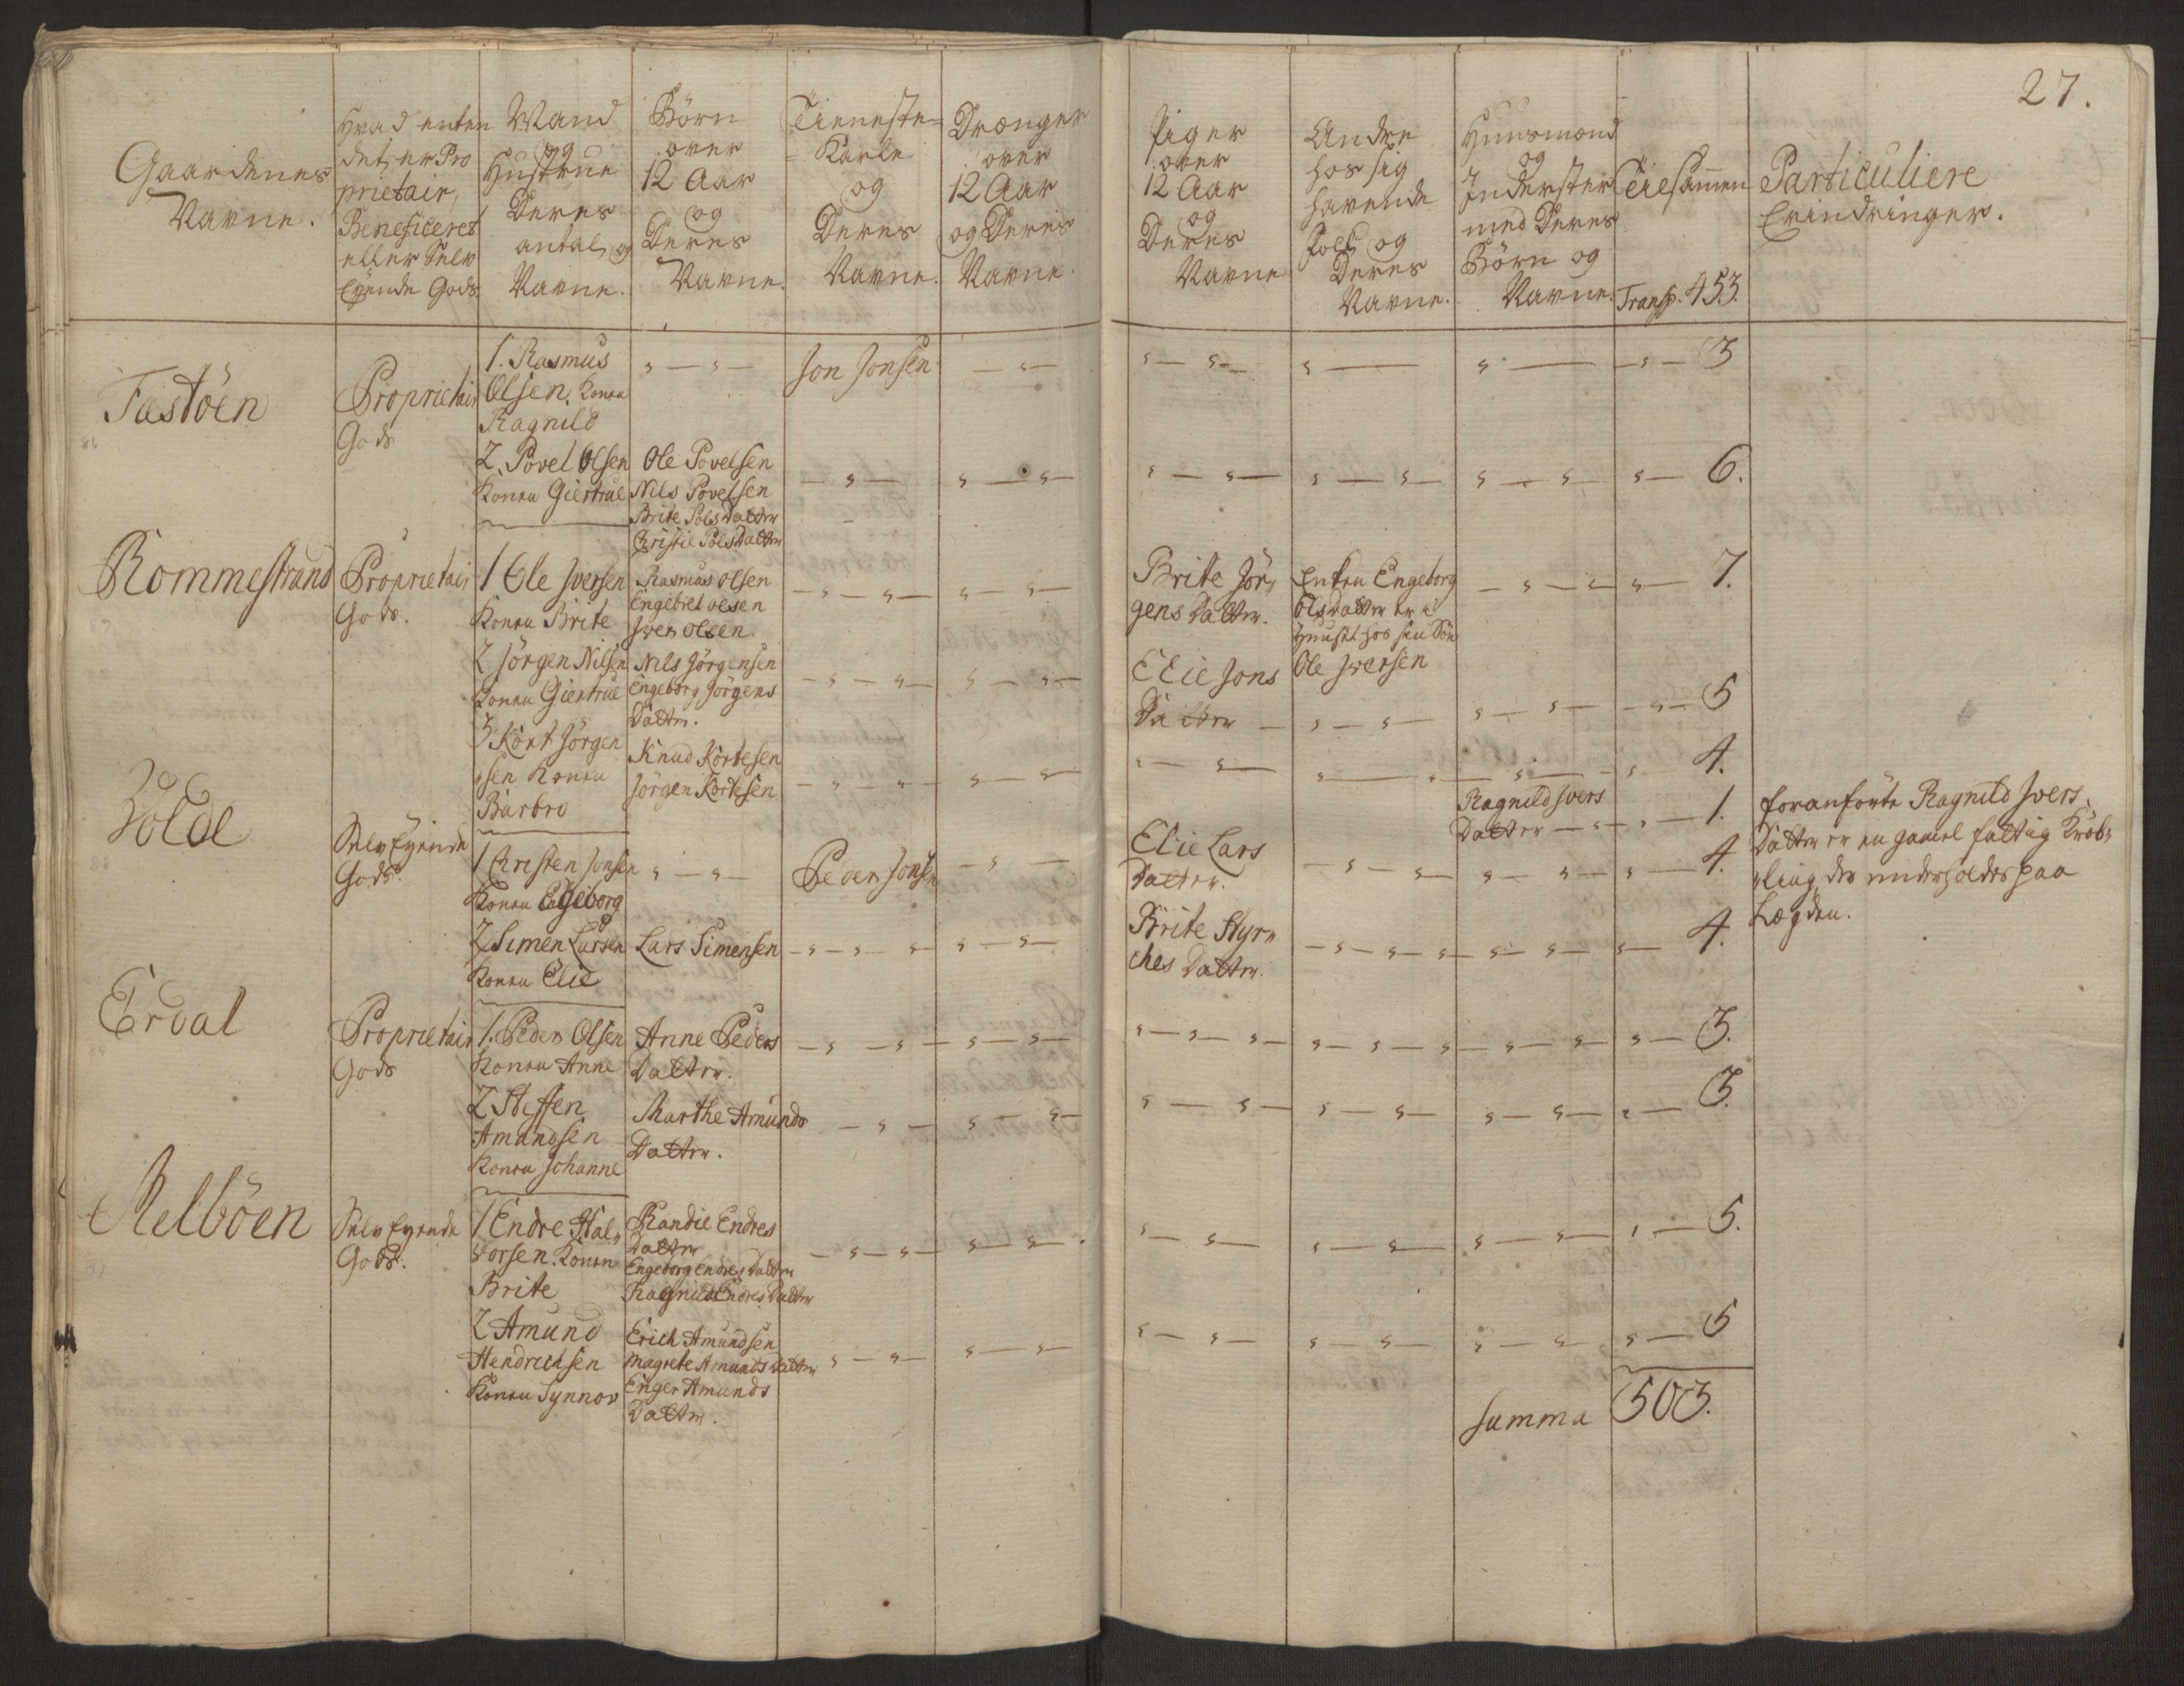 27.
Gaardenes
Navne.
Hvad enten
det er Pro
prietair,
Beneficeret
eller Selv
Eyende Gods
Mand
og
Hustrue
Deres
antal og
Navne.
Börn
over
12 Aar
og
Deres
Navne.
Tieneste-
Karle
og
Deres
Navne.
Drænger
over
12 Aar
og Deres
Navne.
Piger
over
12 Aar
og
Deres
Navne
Andre
hos sig
havende
Folk og
Deres
Navne.
Huusmænd
og
Inderster
med Deres
Börn og
Navne.
Tilsamen
Transp. 453.
Particuliere
Erindringer.
Tæstöen
Proprietair
Gods
1. Rasmus
Olsen, Konen
Ragnild
Jon Jonsen
3
2. Povel Olsen
Konen Giertrue
Ole Povelsen
Nils Povelsen
Brite Pols Datter
Christie Pols Datter
6.
Rommestrand
Proprietair
Gods.
1 Ole Iversen
Konen Brite
Rasmus Olsen
Engebret Olsen
Iver Olsen.
Brite Jör-
gens Datter.
Enken Engeborg
Ols Datter er i
Huuset hos sin Sön
Ole Iversen
7.
2 Jörgen Nilsen
Konen Giertrue
Nils Jörgensen
Engeborg Jörgens
Datter.
Elie Jons
Datter
5
3 Kort Jörgen
sen Konen
Barbro
Knud Kortesen
Jörgen Kortesen
4.
Ragnild Ivers
Datter
1.
foranförte Ragnild Ivers
Datter er en gamel fattig Kröb-
ling, der underholdes paa
Lægden.
Volde
Selv Eyende
Gods.
1 Christen Jonsen
Konen Engeborg
Peder Jonsen
Elie Lars
Datter.
4.
2 Simen Larsen
Konen Elie
Lars Simensen
Brite Styr-
ches Datter.
4.
Erdal
Proprietair
Gods
1. Peder Olsen
Konen Anne
Anne Peders
Datter.
3.
2 Steffen
Amundsen
Konen Johanne
Marthe Amunds
Datter.
3.
Melböen
Selv Eyende
Gods.
1 Endre Hal-
vorsen. Konen
Brite
Randie Endres
Datter
Engeborg Endres Datter
Ragnild Endres Datter
5.
2 Amund
Hendrichsen
Konen Synnov
Erich Amundsen
Magrete Amunds Datter
Enger Amunds
Datter.
5
Summa 503.